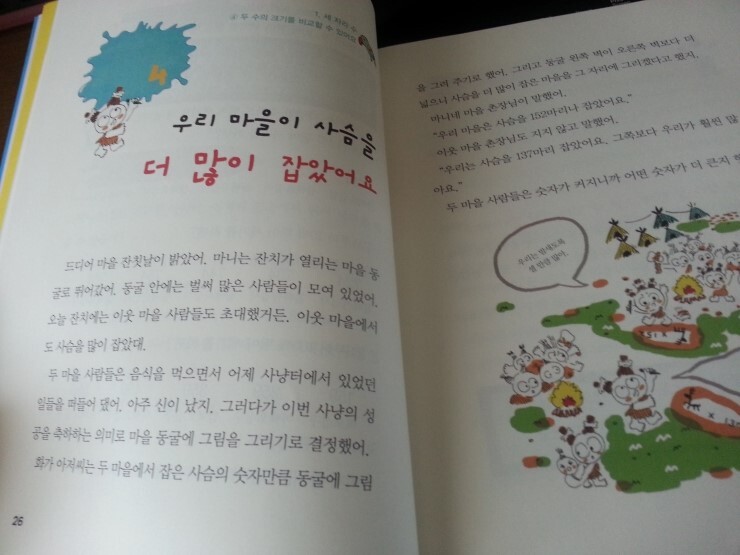 1. 세 자리 수
④ 두 수의 크기를 비교할 수 있어요
4
우리 마을이 사슴을
더 많이 잡았어요
드디어 마을 잔칫날이 밝았어. 마니는 잔치가 열리는 마을 동
굴로 뛰어갔어. 동굴 안에는 벌써 많은 사람들이 모여 있었어.
오늘 잔치에는 이웃 마을 사람들도 초대했거든. 이웃 마을에서
도 사슴을 많이 잡았대.
두 마을 사람들은 음식을 먹으면서 어제 사냥터에서 있었던
일들을 떠들어 댔어. 아주 신이 났지. 그러다가 이번 사냥의 성
공을 축하하는 의미로 마을 동굴에 그림을 그리기로 결정했어.
화가 아저씨는 두 마을에서 잡은 사슴의 숫자만큼 동굴에 그림
26
을 그려 주기로 했어. 그리고 동굴 왼쪽 벽이 오른쪽 벽보다 더
넓으니 사슴을 더 많이 잡은 마을을 그 자리에 그리겠다고 했지.
마니네 마을 촌장님이 말했어.
"우리 마을은 사슴을 152마리나 잡았어요."
이웃 마을 촌장님도 지지 않고 말했어.
"우리는 사슴을 137마리 잡았어요. 그쪽보다 우리가 훨씬 많
아요."
두 마을 사람들은 숫자가 커지니까 어떤 숫자가 더 큰지
우리는 밤새도록
셀 만큼 많아.